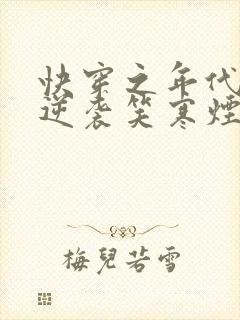 快穿之年代
逆袭笑寒烟
梅兒若雪